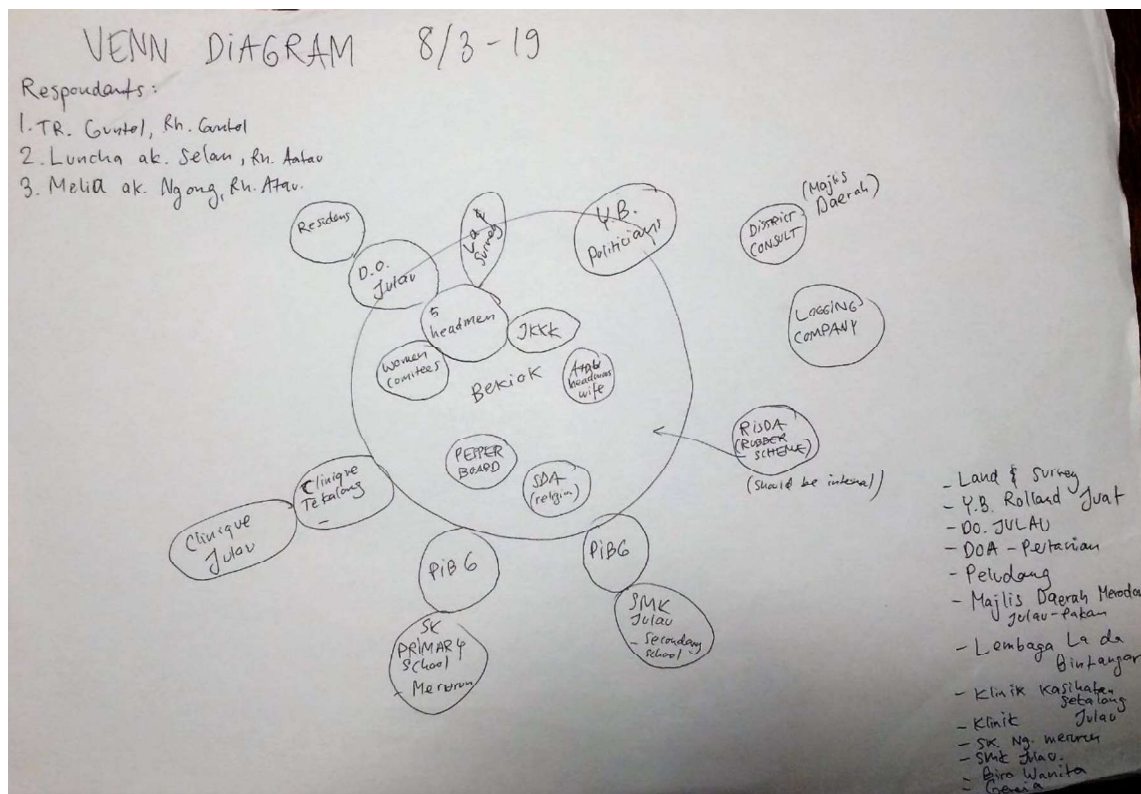 VENN DIAGRAM 8/3-19
Respondants:
1. TR. Guntol, Rh. Cantol
2. Luncha ak. Selan, Rh. Aatau
3. Melia ak. Ngong, Rh. Atau.
Residens
D.O.
Julau
survey
Y.B.
Politicians
(Majlis
Daerah)
DISTRICT
CONSULT
LOGGING
COMPANY
5
headmen
JKKK
Women
comitees
BEKIOK
headmans
wife
PEPPER
BOARD
SDA
(religion)
RISDA
(RUBBER
SCHEME)
(should be internal)
Clinique
Tekalong
-
Clinique
Julau
PiBG
PiBG
SK
PRIMARY
School
- Merurun
SMK
Julau
- Secondary
school
- Land & survey
- Y.B. Rolland Juat
- DO. JULAU
- DOA - Pertanian
- Peludang
- Majlis Daerah
Julau-Pakan
- Lembaga La da
Bintangor
- Klinik Kasihatan
- Klinik Julau
- SK. Ng. merurun
- SMK Julau.
- Biro Wanita